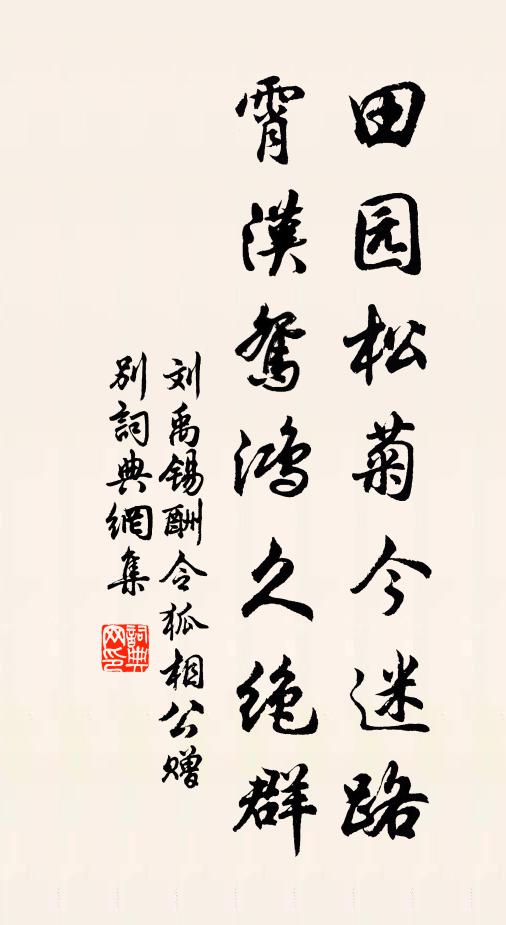 田园松菊今迷路
霄漢鴛鴻久绝群
刘禹锡酬令狐相公赠
别詞典網集
詞典网印